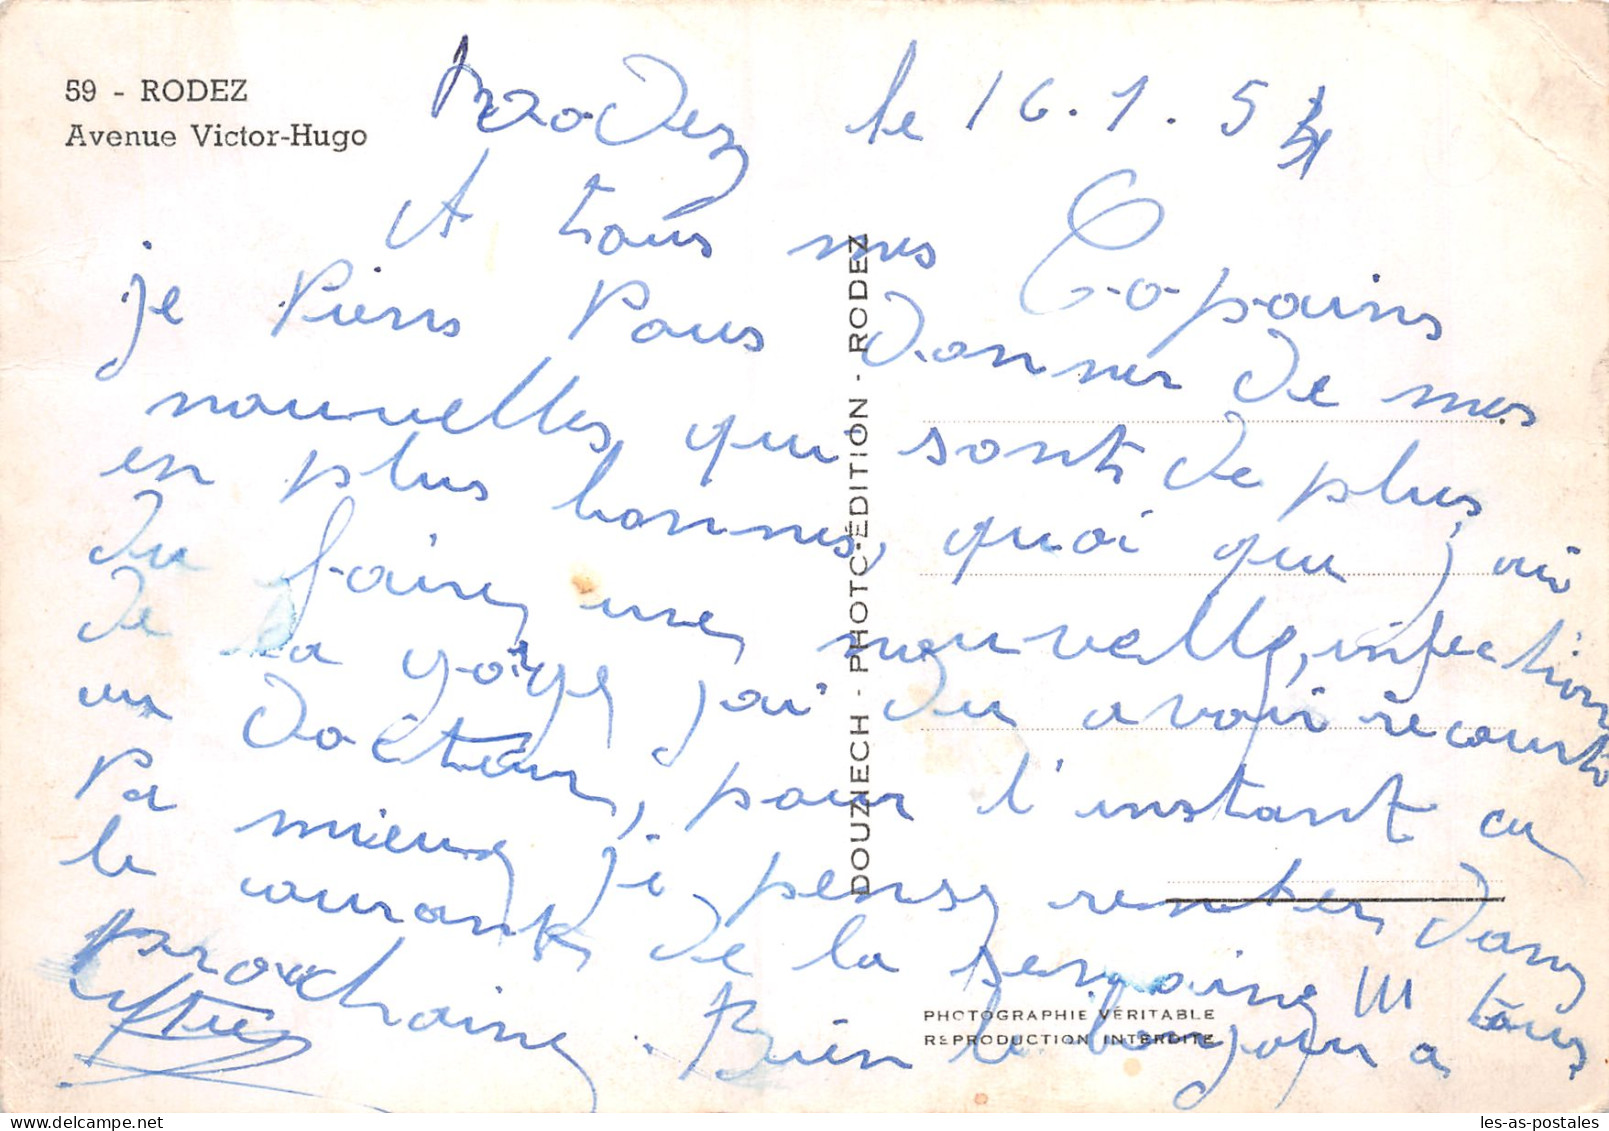 59 - RODEZ
Avenue Victor-Hugo
Rodez le 16.1.54
A tous mes Copains
je viens vous donner de mes
nouvelles qui sont de plus
en plus bonnes, quoi que j'ai
du faire une nouvelle, infection
de la gorge j'ai du avoir recourts
un docteur, pour l'instant ça
va mieux je pense rentrer dans
le courant de la semaine
prochaine. Bien le bonjour a tous
DOUZIECH - PHOTO-ÉDITION - RODEZ
PHOTOGRAPHIE VÉRITABLE
REPRODUCTION INTERDITE
les-as-postales